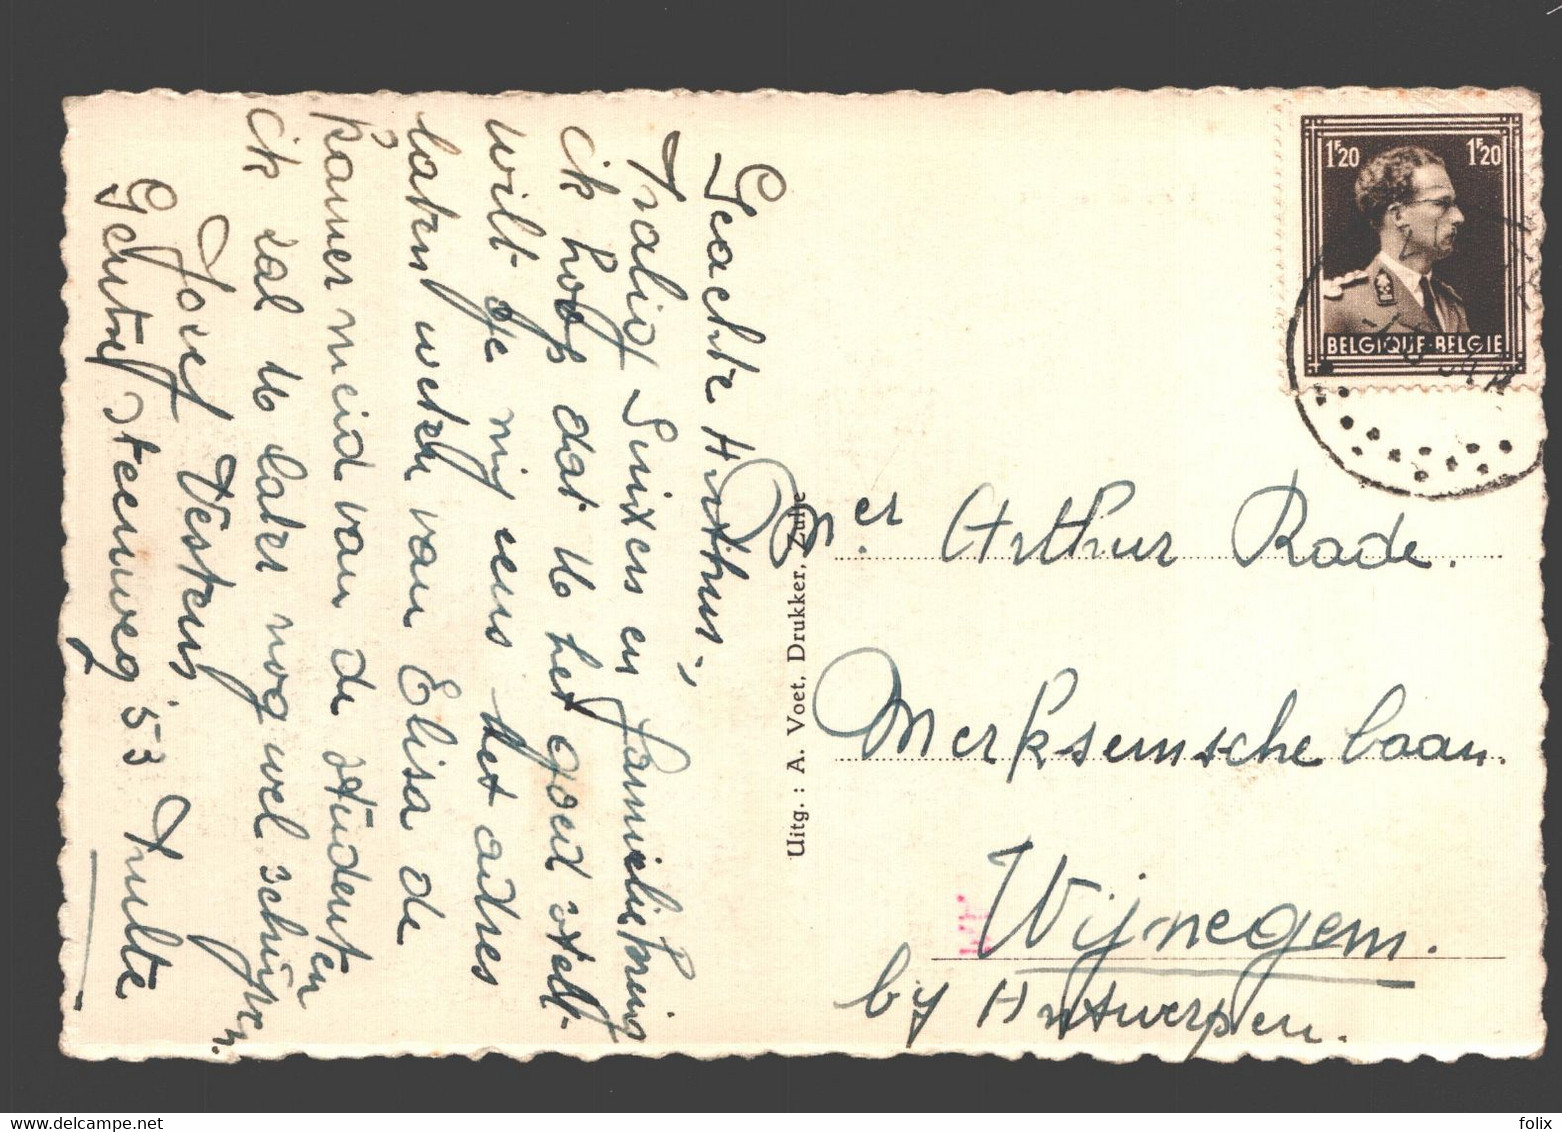 Geachte Arthur.,
Zalig Sinxen en familie kring
ik hoop dat U het goed stelt.
wilt ge mij eens het adres
laten weten van Elisa de
kamer meid van de studenten
ik zal U later nog wel schrijven.
Jozef Verstens
Gentse Steenweg 53 Zulte
Uitg.: A. Voet, Drukker, Zulte
1F20 1F20
BELGIQUE·BELGIE
Mer Arthur Rade.
Merksemsche baan.
Wijnegem.
by Antwerpen.
folix
delcampe.net